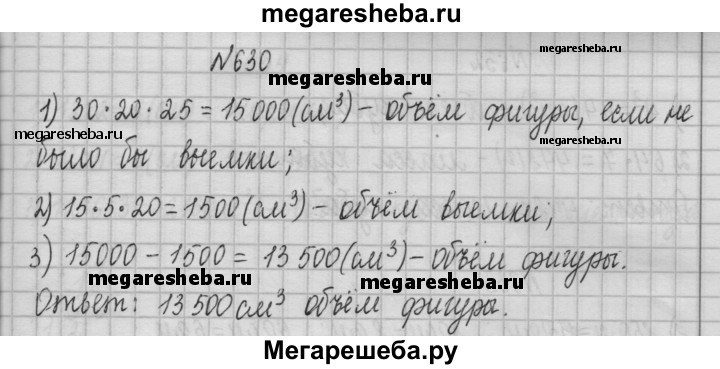 megaresheba.ru
N630
megaresheba.ru
megaresheba.ru
1) 30·20·25 = 15000 (см³) - объём фигуры, если не
megaresheba.ru
было бы выемки;
2) 15·5·20 = 1500 (см³) - объём выемки;
3) 15000 - 1500 = 13 500 (см³) - объём фигуры.
megaresheba.ru
megaresheba.ru
Ответ: 13 500 см³ объём фигуры.
Мегарешеба.ру